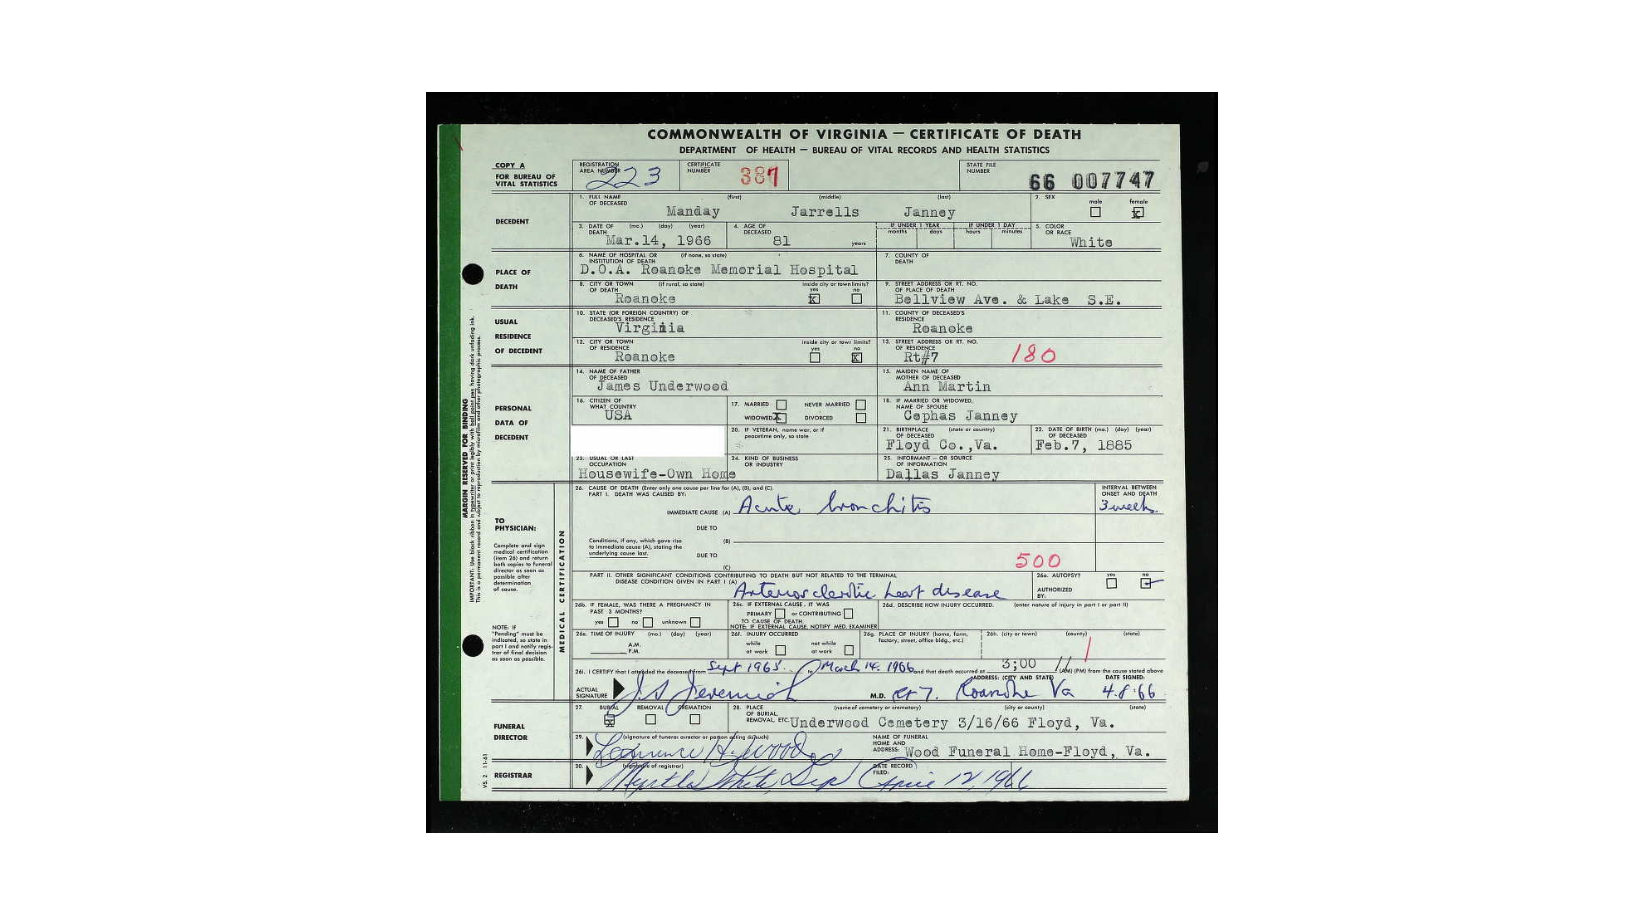 COMMONWEALTH OF VIRGINIA — CERTIFICATE OF DEATH
DEPARTMENT OF HEALTH — BUREAU OF VITAL RECORDS AND HEALTH STATISTICS
COPY A
FOR BUREAU OF VITAL STATISTICS
REGISTRATION AREA NUMBER 223
CERTIFICATE NUMBER 387
STATE FILE NUMBER 66 007747
DECEDENT
1. FULL NAME OF DECEASED (first) (middle) (last)
Manday Jarrells Janney
2. SEX male female X
3. DATE OF DEATH (mo.) (day) (year)
Mar.14, 1966
4. AGE OF DECEASED 81 years
IF UNDER 1 YEAR months days
IF UNDER 1 DAY hours minutes
5. COLOR OR RACE White
PLACE OF DEATH
6. NAME OF HOSPITAL OR INSTITUTION OF DEATH (if none, so state)
D.O.A. Roanoke Memorial Hospital
7. COUNTY OF DEATH
8. CITY OR TOWN OF DEATH (if rural, so state) Roanoke
inside city or town limits? yes X no
9. STREET ADDRESS OR RT. NO. OF PLACE OF DEATH
Bellview Ave. & Lake S.E.
USUAL RESIDENCE OF DECEDENT
10. STATE (OR FOREIGN COUNTRY) OF DECEASED'S RESIDENCE
Virginia
11. COUNTY OF DECEASED'S RESIDENCE
Roanoke
12. CITY OR TOWN OF RESIDENCE Roanoke
inside city or town limits? yes no X
13. STREET ADDRESS OR RT. NO. OF RESIDENCE
Rt#7 180
PERSONAL DATA OF DECEDENT
14. NAME OF FATHER OF DECEASED
James Underwood
15. MAIDEN NAME OF MOTHER OF DECEASED
Ann Martin
16. CITIZEN OF WHAT COUNTRY USA
17. MARRIED NEVER MARRIED
WIDOWED X DIVORCED
18. IF MARRIED OR WIDOWED, NAME OF SPOUSE
Cephas Janney
20. IF VETERAN, name war, or if peacetime only, so state
21. BIRTHPLACE OF DECEASED (state or country)
Floyd Co.,Va.
22. DATE OF BIRTH (mo.) (day) (year) OF DECEASED
Feb.7, 1885
23. USUAL OR LAST OCCUPATION
Housewife-Own Home
24. KIND OF BUSINESS OR INDUSTRY
25. INFORMANT — OR SOURCE OF INFORMATION
Dallas Janney
MARGIN RESERVED FOR BINDING
TO PHYSICIAN:
Complete and sign medical certification (item 26) and return both copies to funeral director as soon as possible after determination of cause.
NOTE: IF "Pending" must be indicated, so state in part I and notify registrar of final decision as soon as possible.
MEDICAL CERTIFICATION
26. CAUSE OF DEATH (Enter only one cause per line for (A), (B), and (C).
PART I. DEATH WAS CAUSED BY:
INTERVAL BETWEEN ONSET AND DEATH
IMMEDIATE CAUSE (A) Acute bronchitis 3 weeks
DUE TO
Conditions, if any, which gave rise to immediate cause (A), stating the underlying cause last.
(B)
DUE TO
(C)
500
PART II. OTHER SIGNIFICANT CONDITIONS CONTRIBUTING TO DEATH BUT NOT RELATED TO THE TERMINAL DISEASE CONDITION GIVEN IN PART I (A)
Arteriosclerotic heart disease
26a. AUTOPSY? yes no
AUTHORIZED BY:
26b. IF FEMALE, WAS THERE A PREGNANCY IN PAST 3 MONTHS?
yes no unknown
26c. IF EXTERNAL CAUSE, IT WAS
PRIMARY or CONTRIBUTING
TO CAUSE OF DEATH.
NOTE: IF EXTERNAL CAUSE, NOTIFY MED. EXAMINER
26d. DESCRIBE HOW INJURY OCCURRED. (enter nature of injury in part I or part II)
26e. TIME OF INJURY (mo.) (day) (year)
A.M.
P.M.
26f. INJURY OCCURRED
while at work not while at work
26g. PLACE OF INJURY (home, farm, factory, street, office bldg., etc.)
26h. (city or town) (county) (state)
26i. I CERTIFY that I attended the deceased from Sept 1965 to March 14, 1966 and that death occurred at 3;00 (AM) (PM) from the cause stated above
ACTUAL SIGNATURE J.S. Jeremiah M.D.
ADDRESS: (CITY AND STATE) Rt 7. Roanoke Va
DATE SIGNED: 4.8.66
FUNERAL DIRECTOR
27. BURIAL X REMOVAL CREMATION
28. PLACE OF BURIAL, REMOVAL, ETC. (name of cemetery or crematory) (city or county) (state)
Underwood Cemetery 3/16/66 Floyd, Va.
29. (signature of funeral director or person acting as such)
NAME OF FUNERAL HOME AND ADDRESS: Wood Funeral Home-Floyd, Va.
REGISTRAR
30. (signature of registrar)
Myrtle White, Dep
DATE RECORD FILED: April 12, 1966
VS. 2 11-61